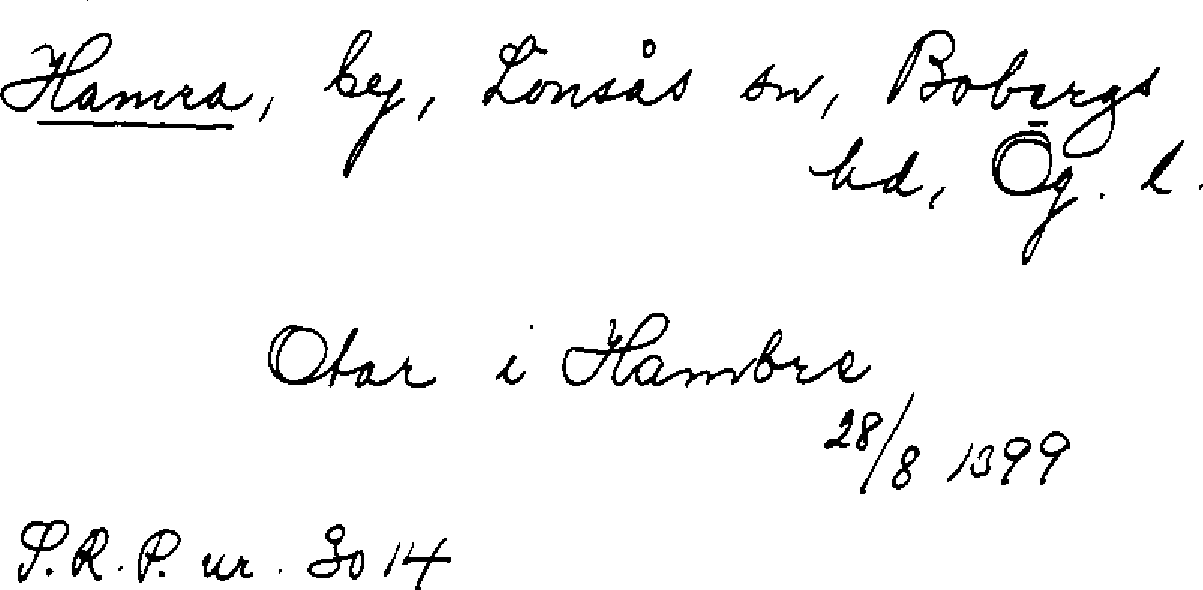 Hamra, by, Lönsås sn, Bobergs
hd, Ög. l.
Otar i Hambre
28/8 1399
S.R.P. nr. 3014